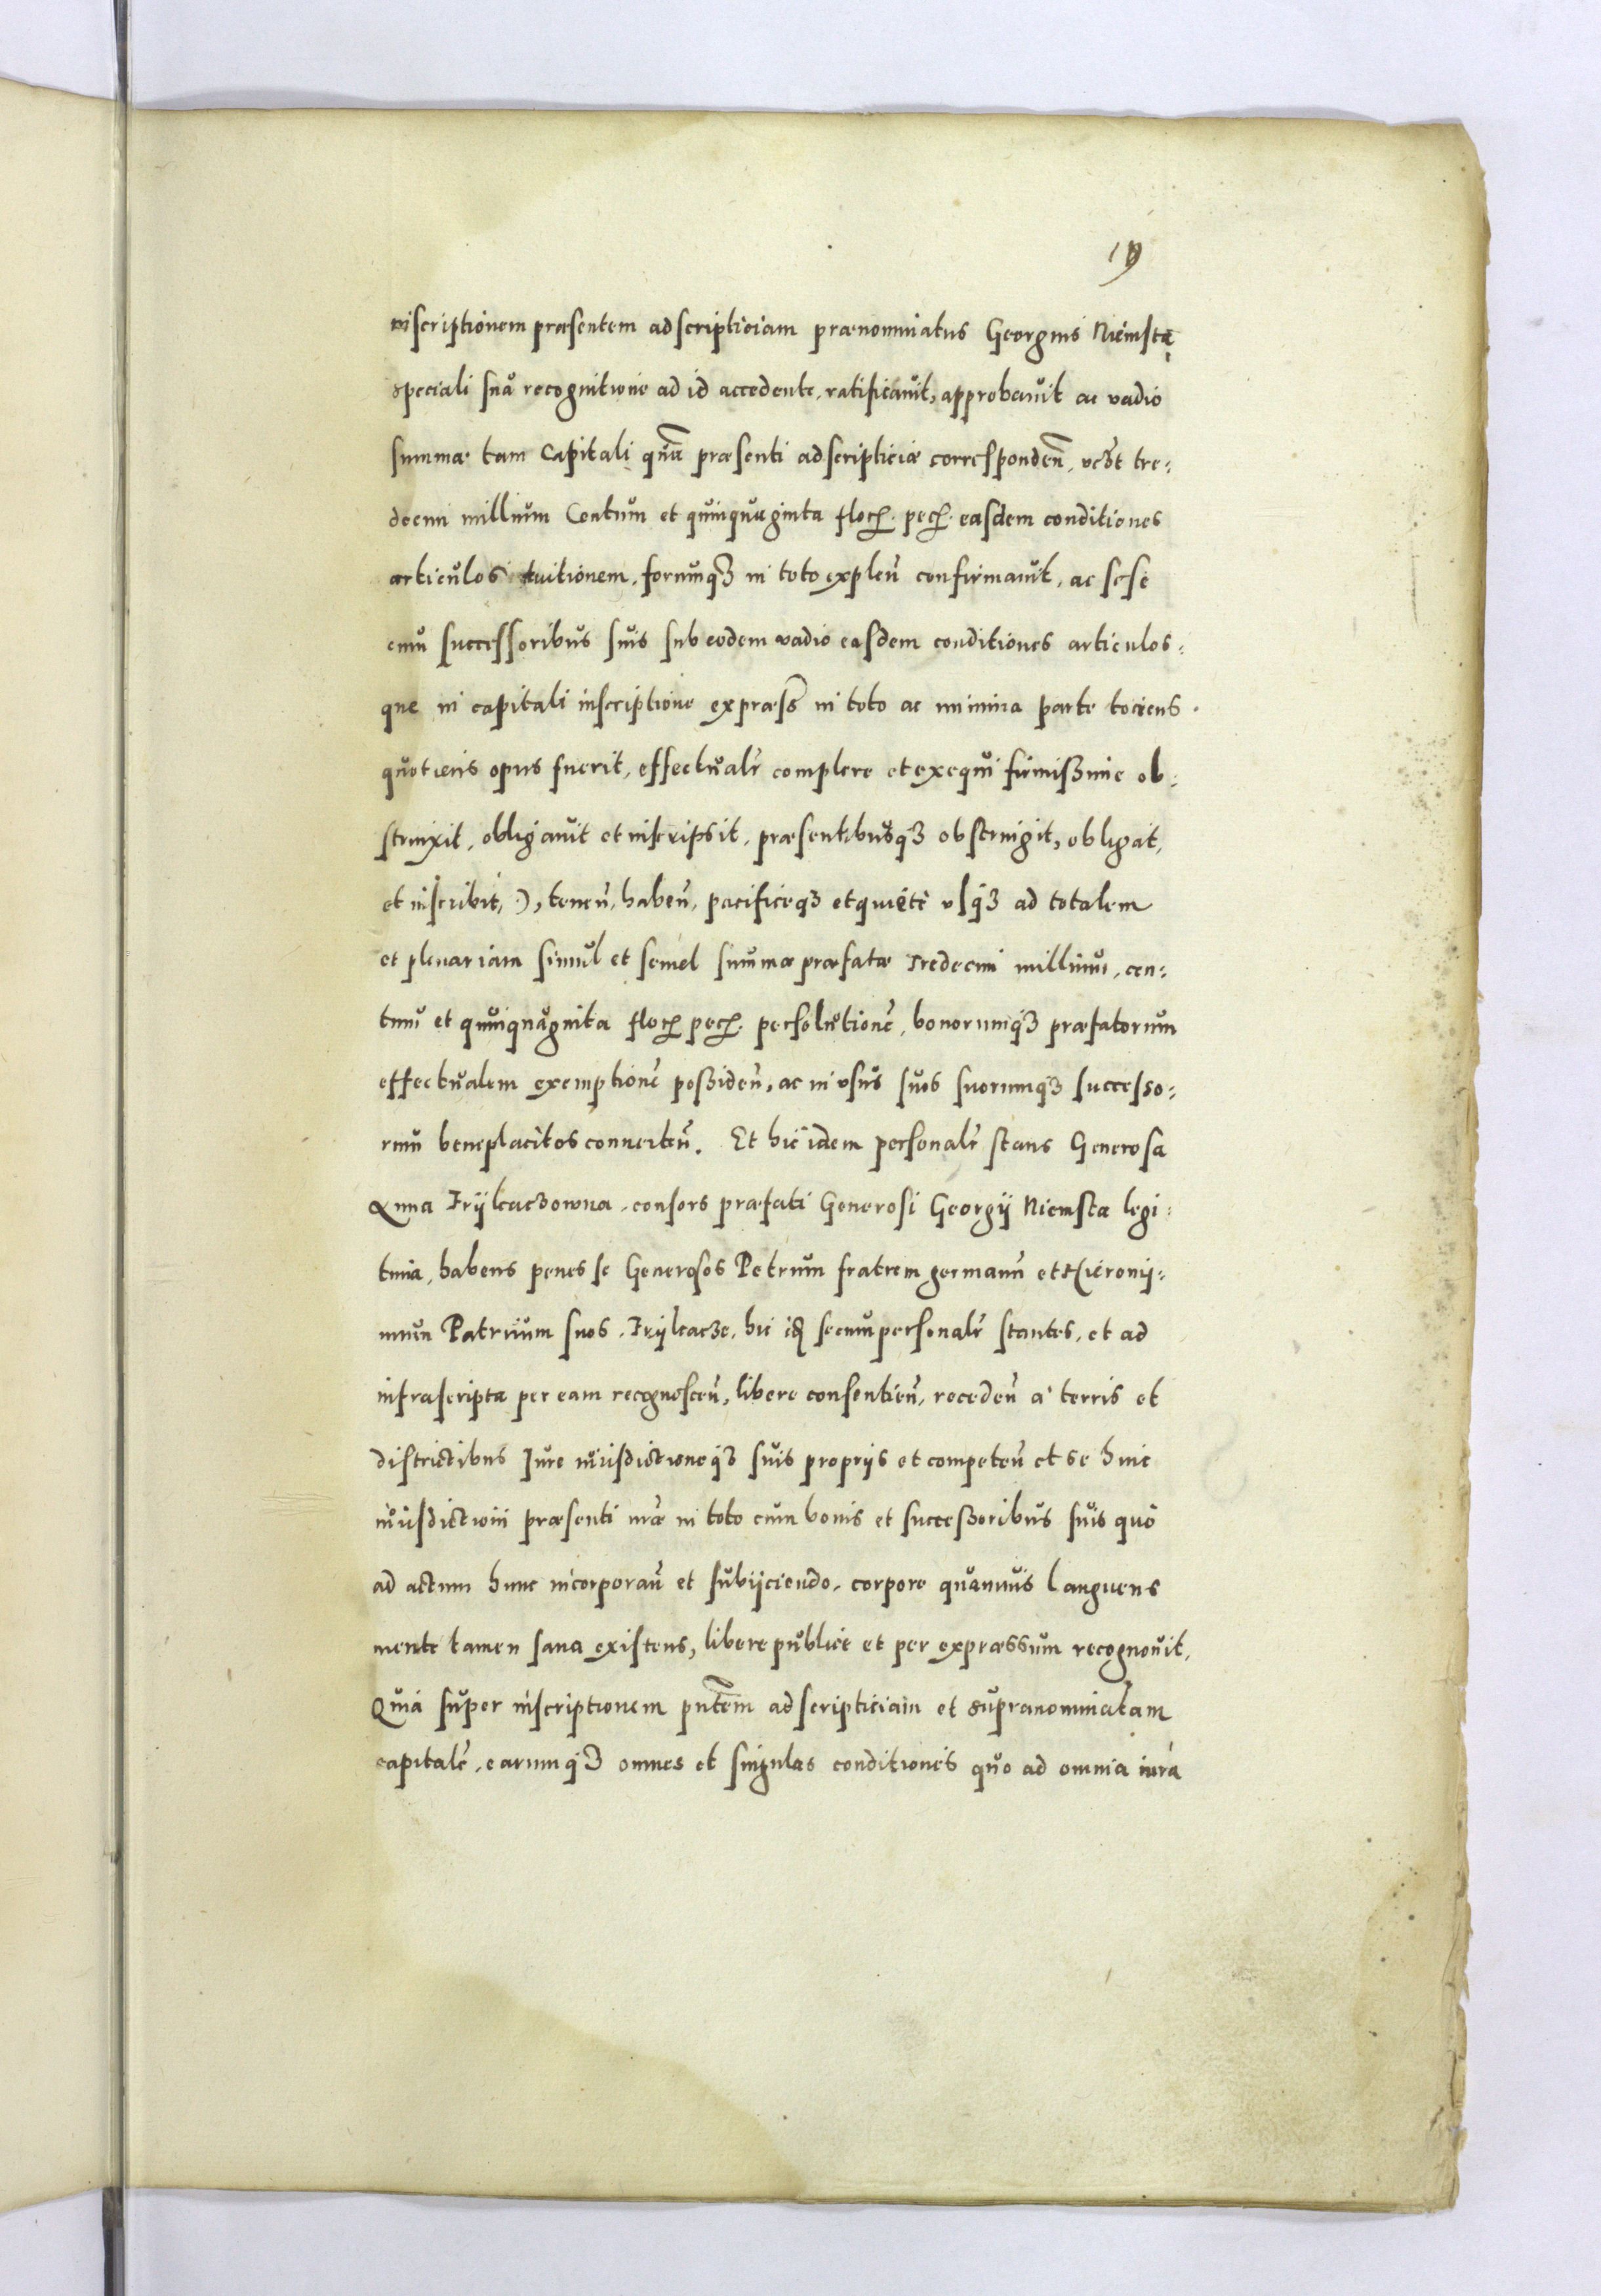 19
inscriptionem præsentem adscripticiam prænominatus Georgius Niemsta
speciali sua recognitione ad id accedente, ratificavit, approbavit ac vadio
summæ tam Capitali quã præsenti adscripticiæ correspondeñ, tre:
decim millium Centum et quinquaginta pec. easdem conditiones
articulos tuitionem, forumqз in toto expleñ confirmavit, ac sese
cum successoribus suis sub eodem vadio easdem conditiones articulos:
que in capitali inscriptione expræss in toto ac minima parte tociens
quotiens opus fuerit, effectualr complere et exequi firmissime ob:
strinxit, obligavit et inscripsit, præsentibusqз obstringit, obligat,
et inscribit, :), teneñ, habeñ, pacificeqз et quiete usqз ad totalem
et plenariam simul et semel summæ præfatæ tredecim millium, cen:
tum et quinquaginta pec. persolutionē, bonorumqз præfatorum
effectualem exemptionē possideñ, ac in usus suos suorumqз successo:
rum beneplacitos converteñ. Et hic idem personalr stans Generosa
Anna Trÿleaczowna, consors præfati Generosi Georgij Niemsta legi:
tima, habens penes se Generosos Petrum fratrem germanū et Hieronÿ:
mum Patruum suos, Trÿleacze, hic secum personalr stantes, et ad
infrascripta per eam recognosceñ, libere consentieñ, recedeñ a terris et
districtibus Iure iurisdictioneqз suis proprijs et competeñ et se huic
iurisdictioni præsenti nræ in toto cum bonis et successoribus suis quo
ad actum hunc incorporañ et subijciendo, corpore quamvis languens
mente tamen sana existens, libere publice et per expræssum recognovit,
Quia super inscriptionem pntem adscripticiam et supranominatam
capitalē, earumqз omnes et singulas conditiones quo ad omnia iura